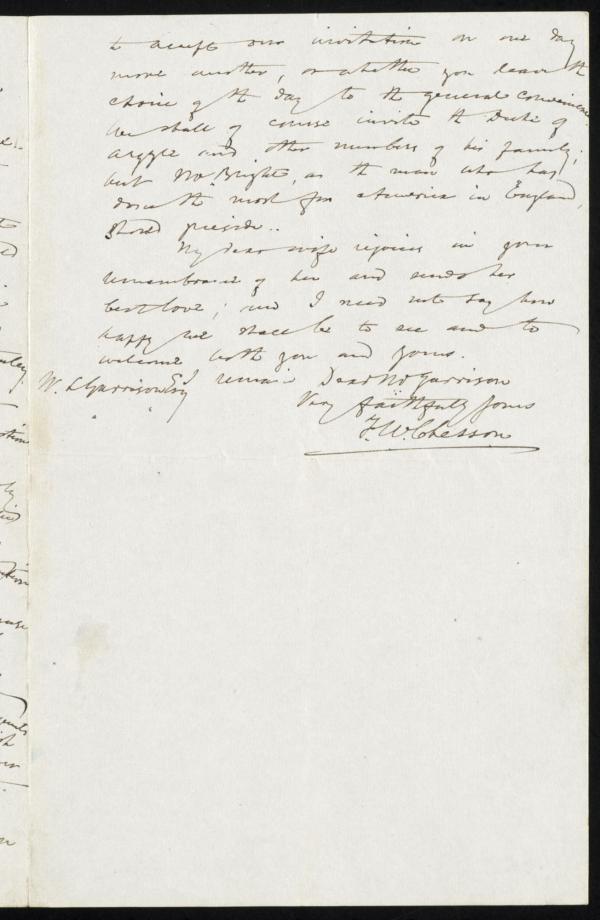 to accept our invitation on one day
more another, or whether you leave the
choice of the day to the general convenience.
We shall of course invite the Duke of
Argyle and other members of his family;
but Mr Bright, as the man who has
done the most for America in England,
should preside.
My dear wife rejoices in your
remembrance of her and sends her
best love; and I need not say how
happy we shall be to see and to
welcome both you and yours.
I remain Dear Mr Garrison
W. L. Garrison Esq
Very faithfully yours
F. W. Chesson